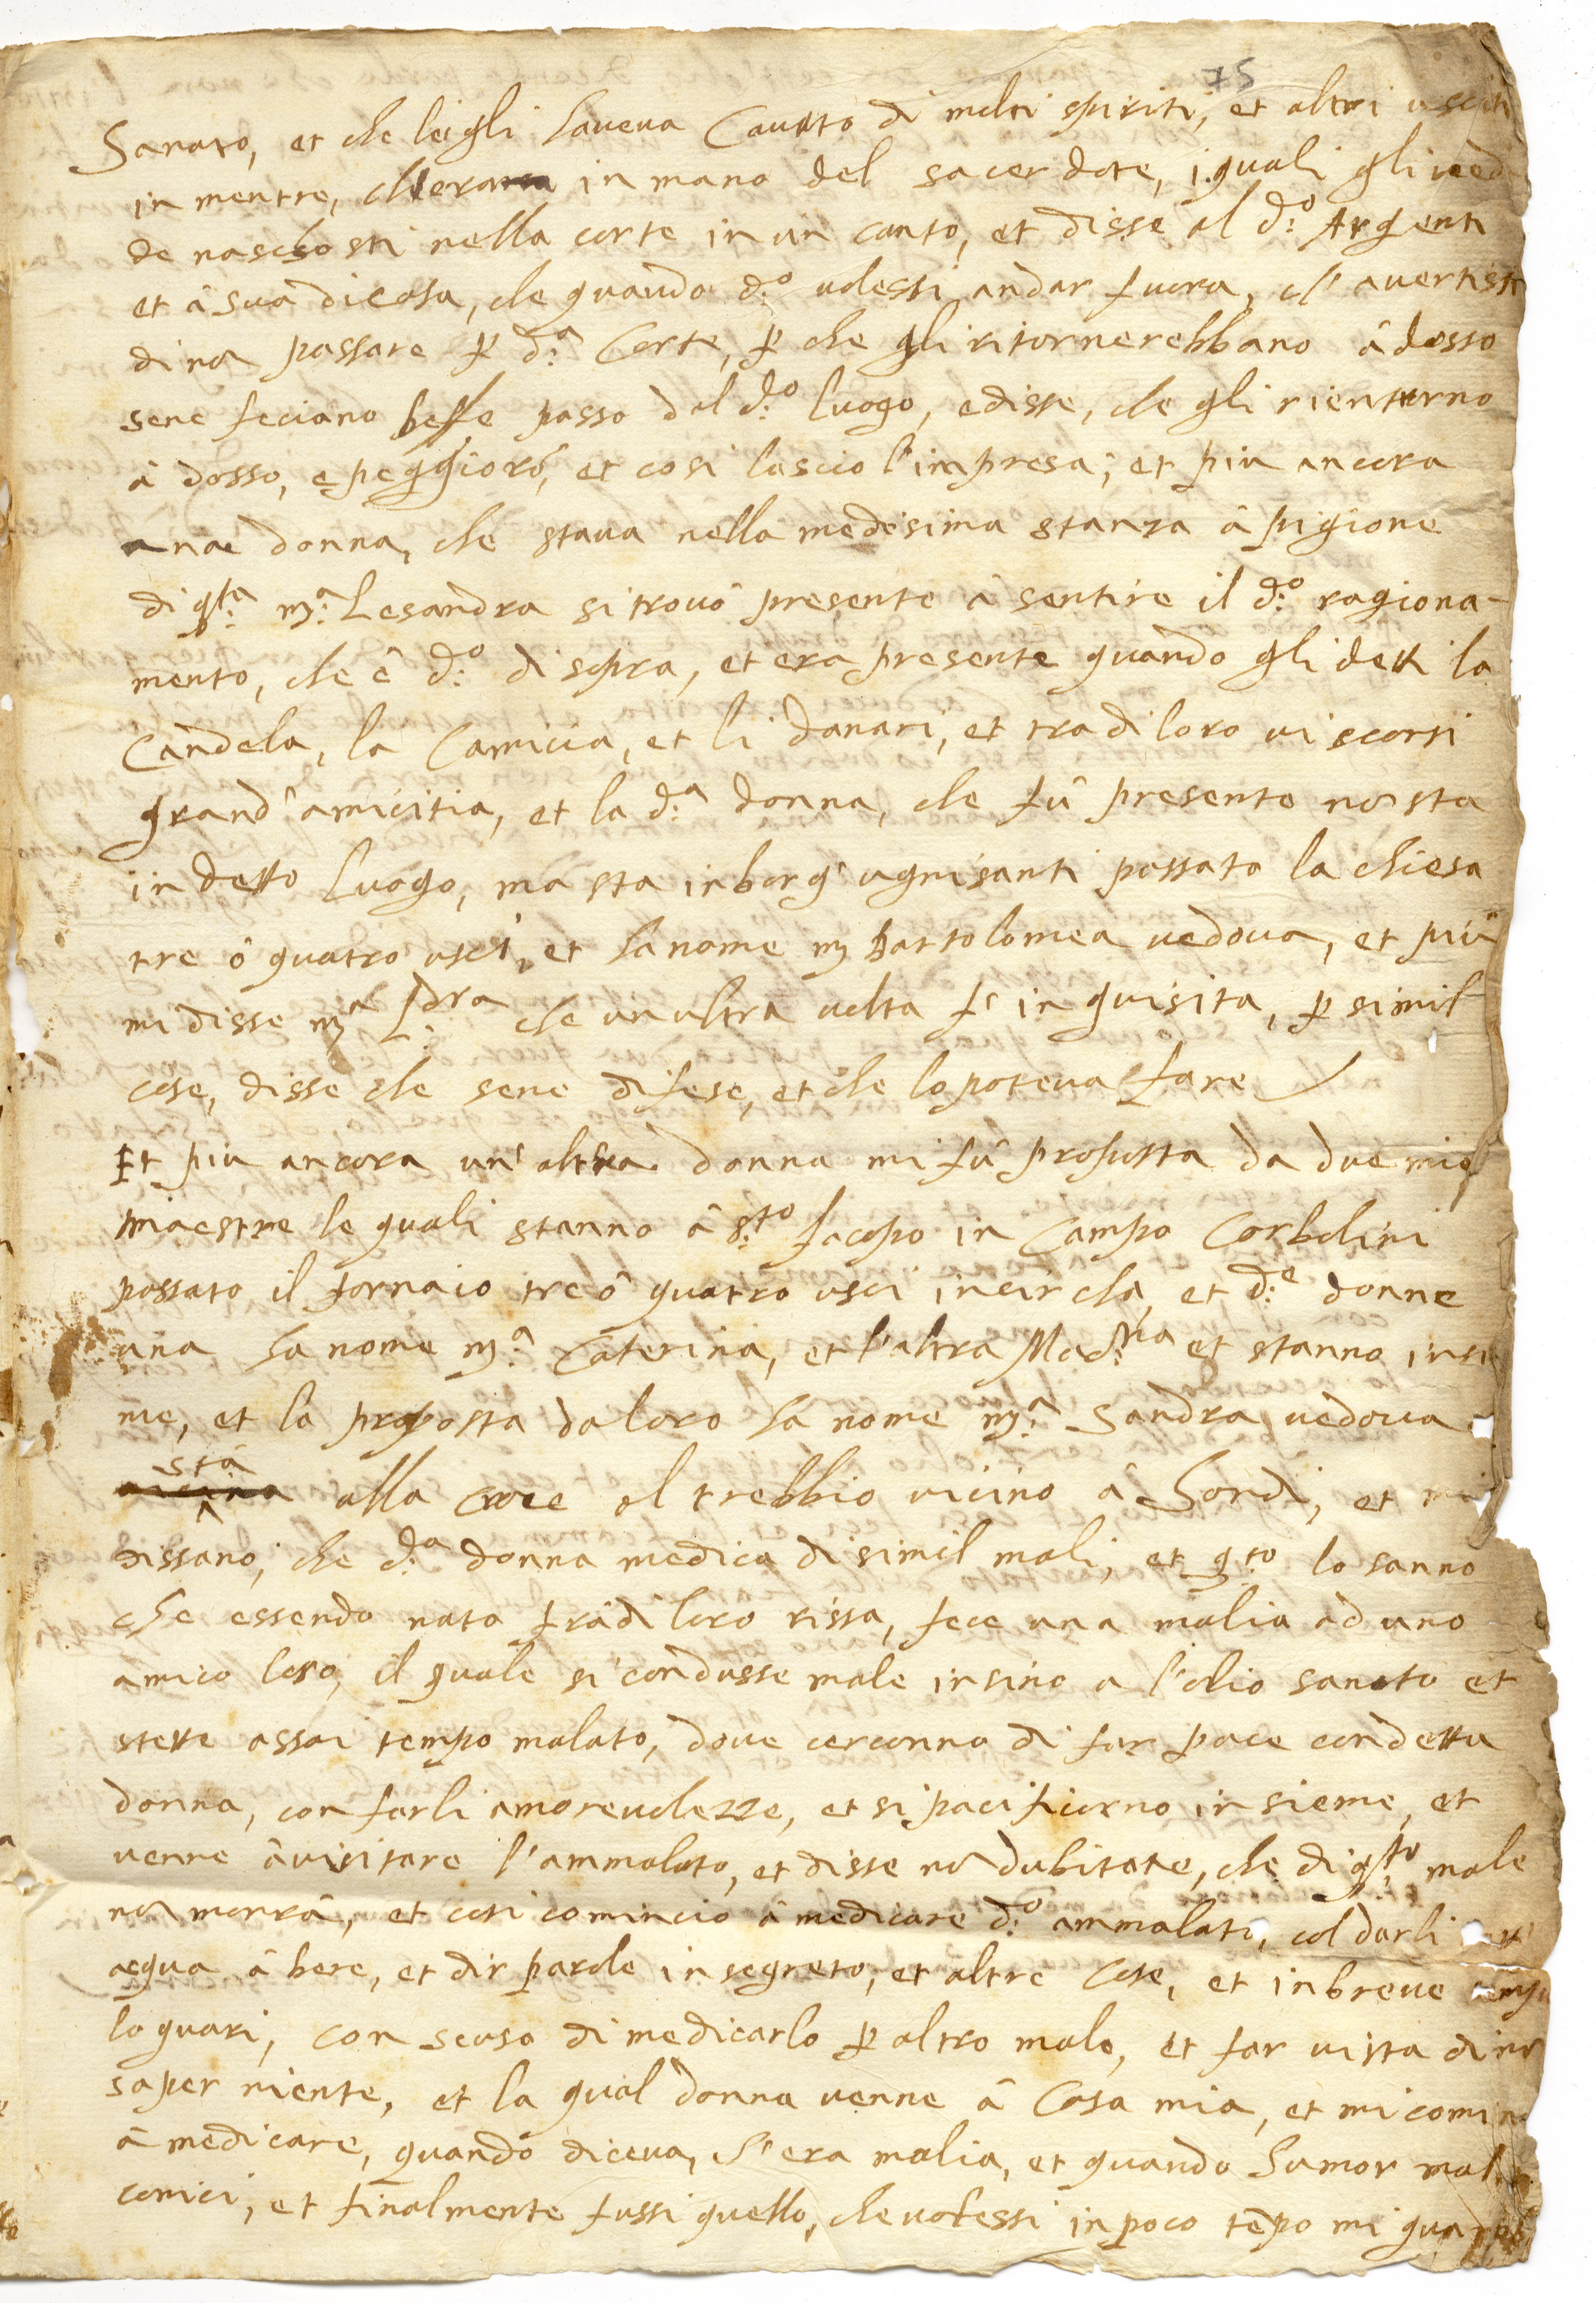 75
Sanato, et che lei gli haveva Cavato di molti spiriti, et altri usciti
in mentre, ch'era in mano del sacerdote, i quali gli ved
de naschosti nella corte in un canto, et disse al d:º Argenti
et à sua di casa, che quando d:º volessi andar fuora, ch' avertissi
di nō passare ꝑ d:ª Corte, ꝑ che gli ritornerebbano à dosso
sene feciano beffe passo dal d:º luogo, e disse, che gli rientrorno
à dosso, e peggiorò, et cosi lascio l'impresa; et piu ancora
una donna, che stava nella medesima stanza à pigione
di qta: m:ª Lesandra si trovò presente à sentire il d:º ragiona-
mento, che è d:º di sopra, et era presente quando gli detti la
Candela, la Camicia, et li danari, et tra di loro vi scorsi
grand' amicitia, et la d:ª donna, che fù presente nō sta
in detto luogo, ma sta in borg' ugnisanti passato la chiesa
tre ò quatro usci, et ha nome m Bartolomea vedova, et più
mi disse mª L:dra che un altra volta f' inquisita, ꝑ simil
cose, disse che sene difese, et che lo poteva fare
Et piu ancora un' altra donna mi fù proposta da due mie
maestre le quali stanno à S:to Jacopo in Campo Corbolini
passato il fornaio tre ò quatro usci in circha, et d:e donne
una ha nome m:ª Caterina, et l'altra Mad:na et stanno insi
me, et la proposta da loro ha nome m:ª Sandra vedova
stà
alla Croce al trebbio vicino à Sordi, et mi
dissano, che d:ª donna medica di simil mali, et q:to lo sanno
che essendo nata frà di loro rissa, fece una malia ad uno
amico loro, il quale si condusse male insino a l'olio santo et
stette assai tempo malato, dove cercorno di far pace con detta
donna, con farli amorevolezze, et si pacificorno insieme, et
venne à visitare l'ammalato, et disse nō dubitate, che di q:to male
nō morrà, et cosi comincio à medicare d:º ammalato, col darli
acqua à bere, et dir parole in segreto, et altre Cose, et in breve temp
lo guari, con scusa di medicarlo ꝑ altro male, et far vista di nō
saper niente, et la qual donna venne à Casa mia, et mi comin
à medicare, quando diceva, ch'era malia, et quando humor mal
conici, et finalmente fussi quello, che volessi in poco tēpo mi